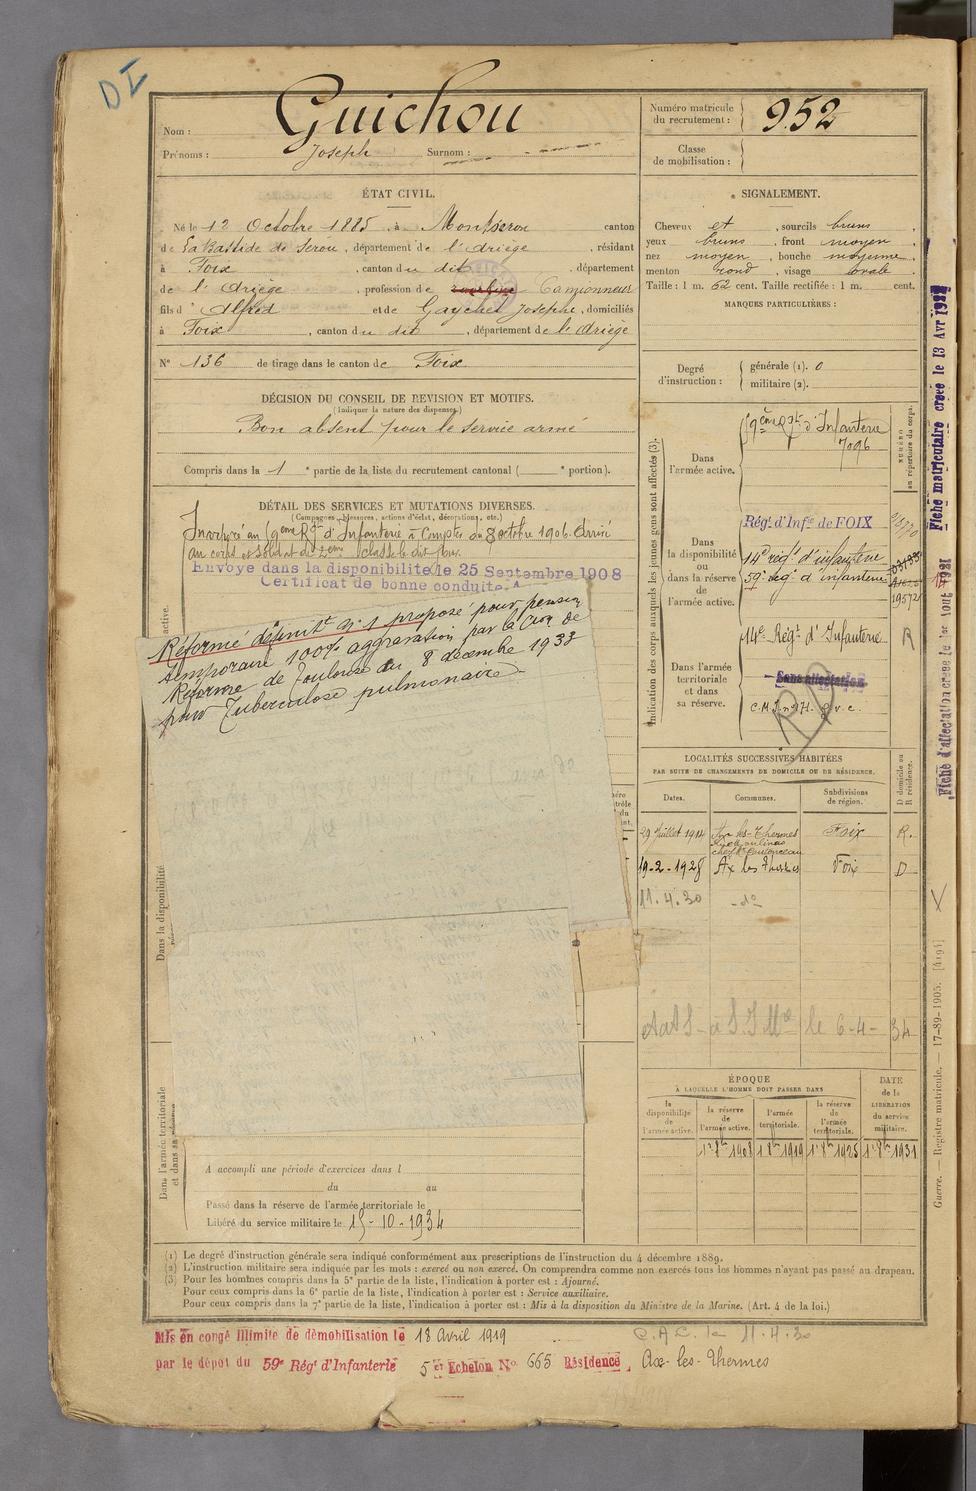 DI
Nom : Guichou
Prénoms : Joseph Surnom :
Numéro matricule du recrutement : 952
Classe de mobilisation :
ÉTAT CIVIL.
Né le 12 Octobre 1885, à Montseron canton
de La Bastide de Serou, département de l'Ariège, résidant
à Foix, canton du dit, département
de l'Ariège, profession de Camionneur
fils d'Alfred et de Gaychet Josephe, domiciliés
à Foix, canton du dit, département de l'Ariège
N° 136 de tirage dans le canton de Foix
DÉCISION DU CONSEIL DE REVISION ET MOTIFS.
(Indiquer la nature des dispenses.)
Bon absent pour le service armé
Compris dans la 1e partie de la liste du recrutement cantonal ( e portion).
DÉTAIL DES SERVICES ET MUTATIONS DIVERSES.
(Campagnes, blessures, actions d'éclat, décorations, etc.)
Incorporé au 9eme Rgt d'Infanterie à Compter du 8 octobre 1906. Arrivé
au corps et Soldat de 2eme classe le dit jour.
Envoyé dans la disponibilité le 25 Septembre 1908
Certificat de bonne conduite. A
Réformé définitt n° 1 proposé pour pension
temporaire 100% aggravation par la Cion de
Réforme de Toulouse du 8 décembre 1933
pour Tuberculose pulmonaire
Dans la disponibilité
Dans l'armée territoriale
et dans sa réserve
A accompli une période d'exercices dans l
du au
Passé dans la réserve de l'armée territoriale le
Libéré du service militaire le 15-10-1934
SIGNALEMENT.
Cheveux et, sourcils bruns,
yeux bruns, front moyen,
nez moyen, bouche moyenne,
menton rond, visage ovale.
Taille : 1 m. 62 cent. Taille rectifiée : 1 m. cent.
MARQUES PARTICULIÈRES :
Degré d'instruction :
générale (1). 0
militaire (2).
Indication des corps auxquels les jeunes gens sont affectés (3).
NUMÉRO
au répertoire du corps.
Dans
l'armée active.
9eme Rgt d'Infanterie
7096
Dans
la disponibilité
ou
dans la réserve
de
l'armée active.
Régt d'Infie de FOIX
14e régt d'infanterie
59e régt d'infanterie
Dans l'armée
territoriale
et dans
sa réserve.
14e Régt d'Infanterie R
Sans affectation
RD
LOCALITÉS SUCCESSIVES HABITÉES
PAR SUITE DE CHANGEMENTS DE DOMICILE OU DE RÉSIDENCE.
Dates. Communes. Subdivisions de région. D domicile ou R résidence.
29 Juillet 1914 Ax les-Thermes Foix R.
19-2-1928 Ax les Thermes Foix D
11.4.30 -do-
le 6-4-34
ÉPOQUE
À LAQUELLE L'HOMME DOIT PASSER DANS
DATE
de la
LIBÉRATION
du service
militaire.
la disponibilité de l'armée active.
la réserve de l'armée active.
l'armée territoriale.
la réserve de l'armée territoriale.
1er 8bre 1908 1er 8bre 1919 1er 8bre 1925 1er 8bre 1931
Fiche matriculaire créée le 13 Avr 1927
Fiche d'affectation créée le 1er Aout 1931
Guerre. — Registre matricule. — 17-89-1905. [4194]
(1) Le degré d'instruction générale sera indiqué conformément aux prescriptions de l'instruction du 4 décembre 1889.
(2) L'instruction militaire sera indiquée par les mots : exercé ou non exercé. On comprendra comme non exercés tous les hommes n'ayant pas passé au drapeau.
(3) Pour les hommes compris dans la 5e partie de la liste, l'indication à porter est : Ajourné.
Pour ceux compris dans la 6e partie de la liste, l'indication à porter est : Service auxiliaire.
Pour ceux compris dans la 7e partie de la liste, l'indication à porter est : Mis à la disposition du Ministre de la Marine. (Art. 4 de la loi.)
Mis en congé illimité de démobilisation le 18 Avril 1919
par le dépôt du 59e Régt d'Infanterie 5e Echelon No 665 Résidence Ax-les-Thermes
C.A.C. le 11.4.30